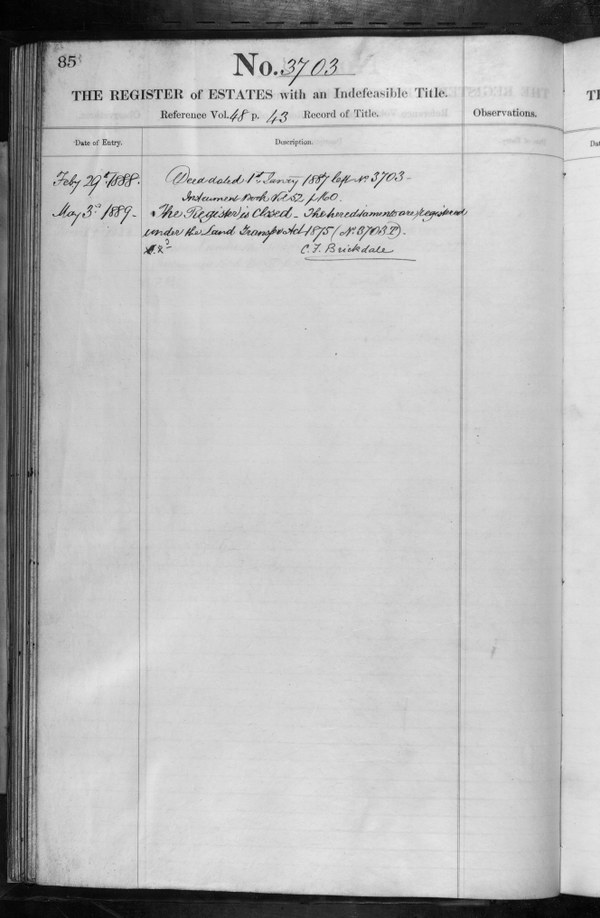 85
No. 3703
THE REGISTER of ESTATES with an Indefeasible Title.
Reference Vol. 48 p. 43 Record of Title.
Observations.
Date of Entry.
Description.
Feby 29th 1888.
Deed dated 1st Janry 1887 left No 3703
Instrument Book Vol 52 f 160.
May 3rd 1889.
The Register is Closed. The hereditaments are registered
under the Land Transfer Act 1875 (No 3703 P).
C. F. Brickdale